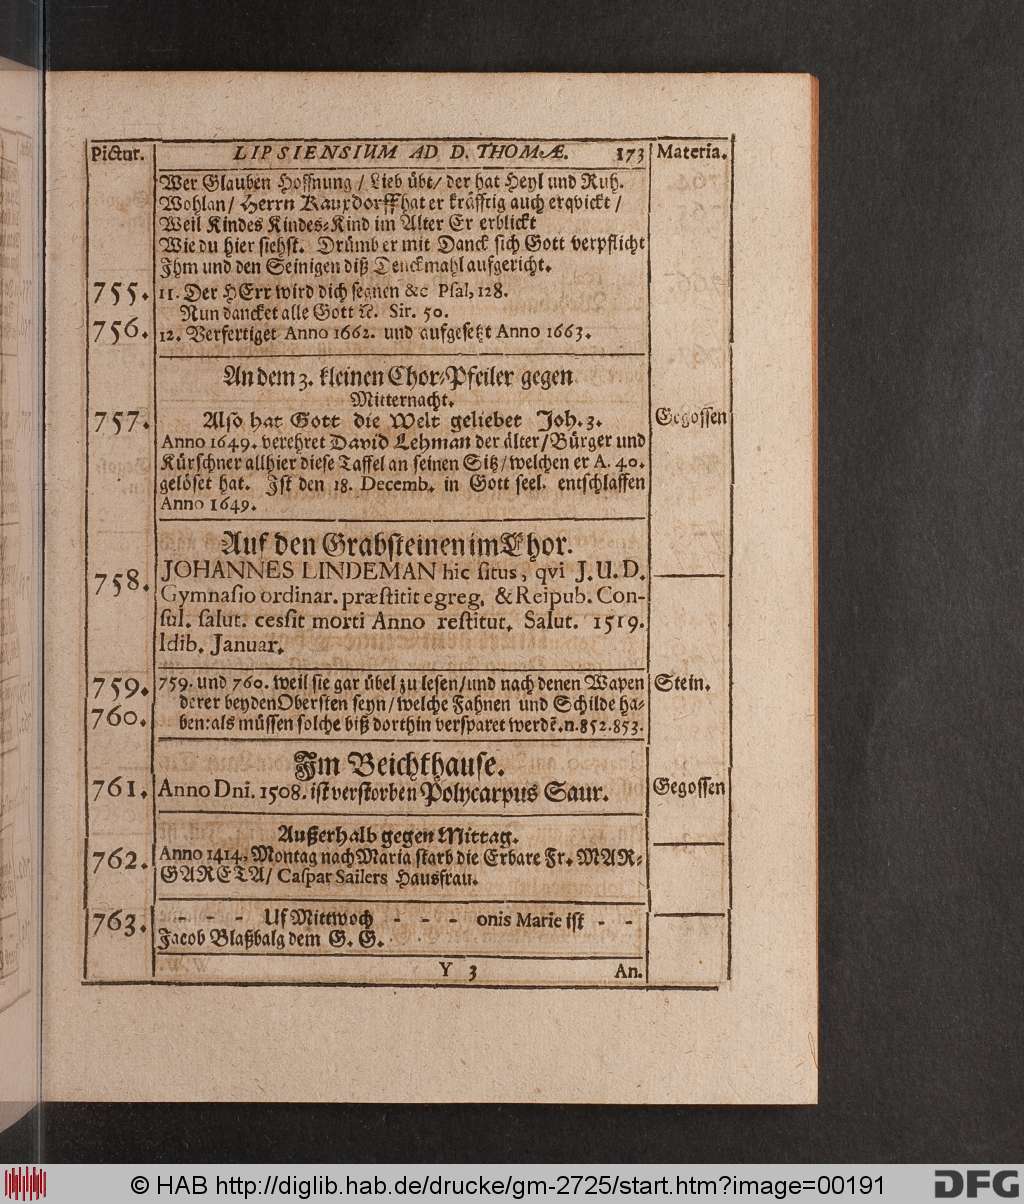 Pictur. LIPSIENSIUM AD D. THOMÆ. 173 Materia.
Wer Glauben Hoffnung / Lieb übt / der hat Heyl und Ruh.
Wohlan / Herrn Rauxdorff hat er kräfftig auch erqvickt /
Weil Kindes Kindes-Kind im Alter Er erblickt
Wie du hier siehst. Drümb er mit Danck sich Gott verpflicht
Ihm und den Seinigen diß Denckmahl auffgericht.
755. 11. Der HErr wird dich segnen &c Psal, 128.
Nun dancket alle Gott ꝛc. Sir. 50.
756. 12. Verfertiget Anno 1662. und aufgesetzt Anno 1663.
An dem 3. kleinen Chor-Pfeiler gegen
Mitternacht.
757. Also hat Gott die Welt geliebet Joh. 3. Gegossen
Anno 1649. verehret David Lehman der älter / Bürger und
Kürschner allhier diese Taffel an seinen Sitz / welchen er A. 40.
gelöset hat. Ist den 18. Decemb. in Gott seel. entschlaffen
Anno 1649.
Auf den Grabsteinen im Chor.
758. JOHANNES LINDEMAN hic situs, qvi J. U. D.
Gymnasio ordinar. præstitit egreg. & Reipub. Con-
sul. salut. cessit morti Anno restitut. Salut. 1519.
Idib. Januar.
759. 759. und 760. weil sie gar übel zu lesen / und nach denen Wapen Stein.
760. derer beyden Obersten seyn / welche Fahnen und Schilde ha-
ben: als müssen solche biß dorthin versparet werdē. n. 852. 853.
Im Beichthause.
761. Anno Dni. 1508. ist verstorben Polycarpus Saur. Gegossen
Außerhalb gegen Mittag.
762. Anno 1414. Montag nach Maria starb die Erbare Fr. MAR-
GARETA / Caspar Sailers Hausfrau.
763. - - - Uf Mittwoch - - - onis Marie ist - -
Jacob Blaßbalg dem G. G.
Y 3 An.
© HAB http://diglib.hab.de/drucke/gm-2725/start.htm?image=00191
DFG